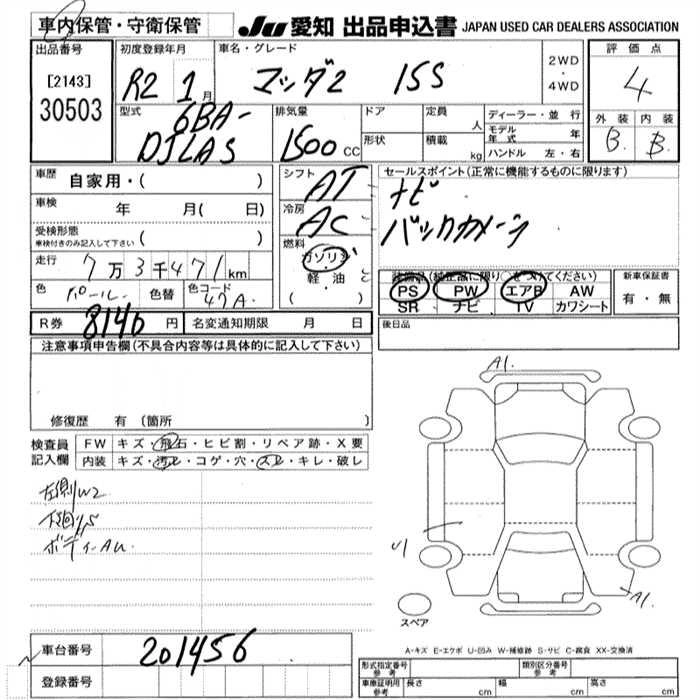 車内保管・守衛保管
JU 愛知 出品申込書 JAPAN USED CAR DEALERS ASSOCIATION
出品番号
[2143]
30503
初度登録年月
R2 1月
車名・グレード
マツダ2 15S
2WD
・
4WD
評価点
4
外装 内装
B B
型式
6BA-
DJLAS
排気量
1500cc
ドア
形状
定員 人
積載 kg
ディーラー・並行
モデル年式 年
ハンドル 左・右
車歴
自家用・( )
車検
年 月( 日)
受検形態
車検付きのみ記入して下さい ( )
走行
7万3千471km
色
パール
色替
色コード
47A
シフト
AT
冷房
AC
燃料
ガソリン
軽油
( )
セールスポイント(正常に機能するものに限ります)
ナビ
バックカメラ
PS PW エアB AW
SR ナビ TV カワシート
新車保証書
有・無
R券 8140円
名変通知期限 月 日
後日品
注意事項申告欄(不具合内容等は具体的に記入して下さい)
修復歴 有 (箇所 )
検査員
記入欄
FW キズ・飛石・ヒビ割・リペア跡・X要
内装 キズ・汚レ・コゲ・穴・スレ・キレ・破レ
左側W2
下廻りS
ボディーAU
A1.
U1
A1.
スペア
A-キズ E-エクボ U-凹み W-補修跡 S-サビ C-腐食 XX-交換済
車台番号 201456
登録番号
形式指定番号
参考
類別区分番号
参考
車庫証明用
参考
長さ cm 幅 cm 高さ cm